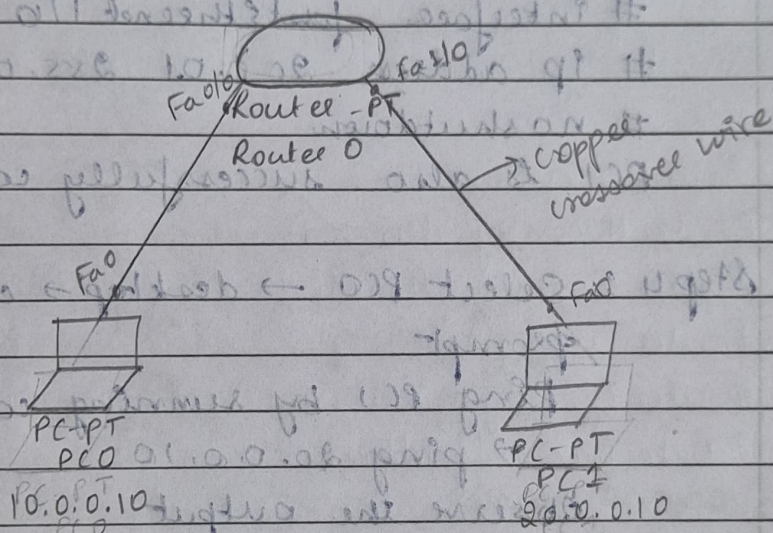 Fa0/0
Fa1/0
Router-PT
Router 0
copper
crossover wire
Fa0
Fa0
PC-PT
PC0
10.0.0.10
PC-PT
PC1
20.0.0.10